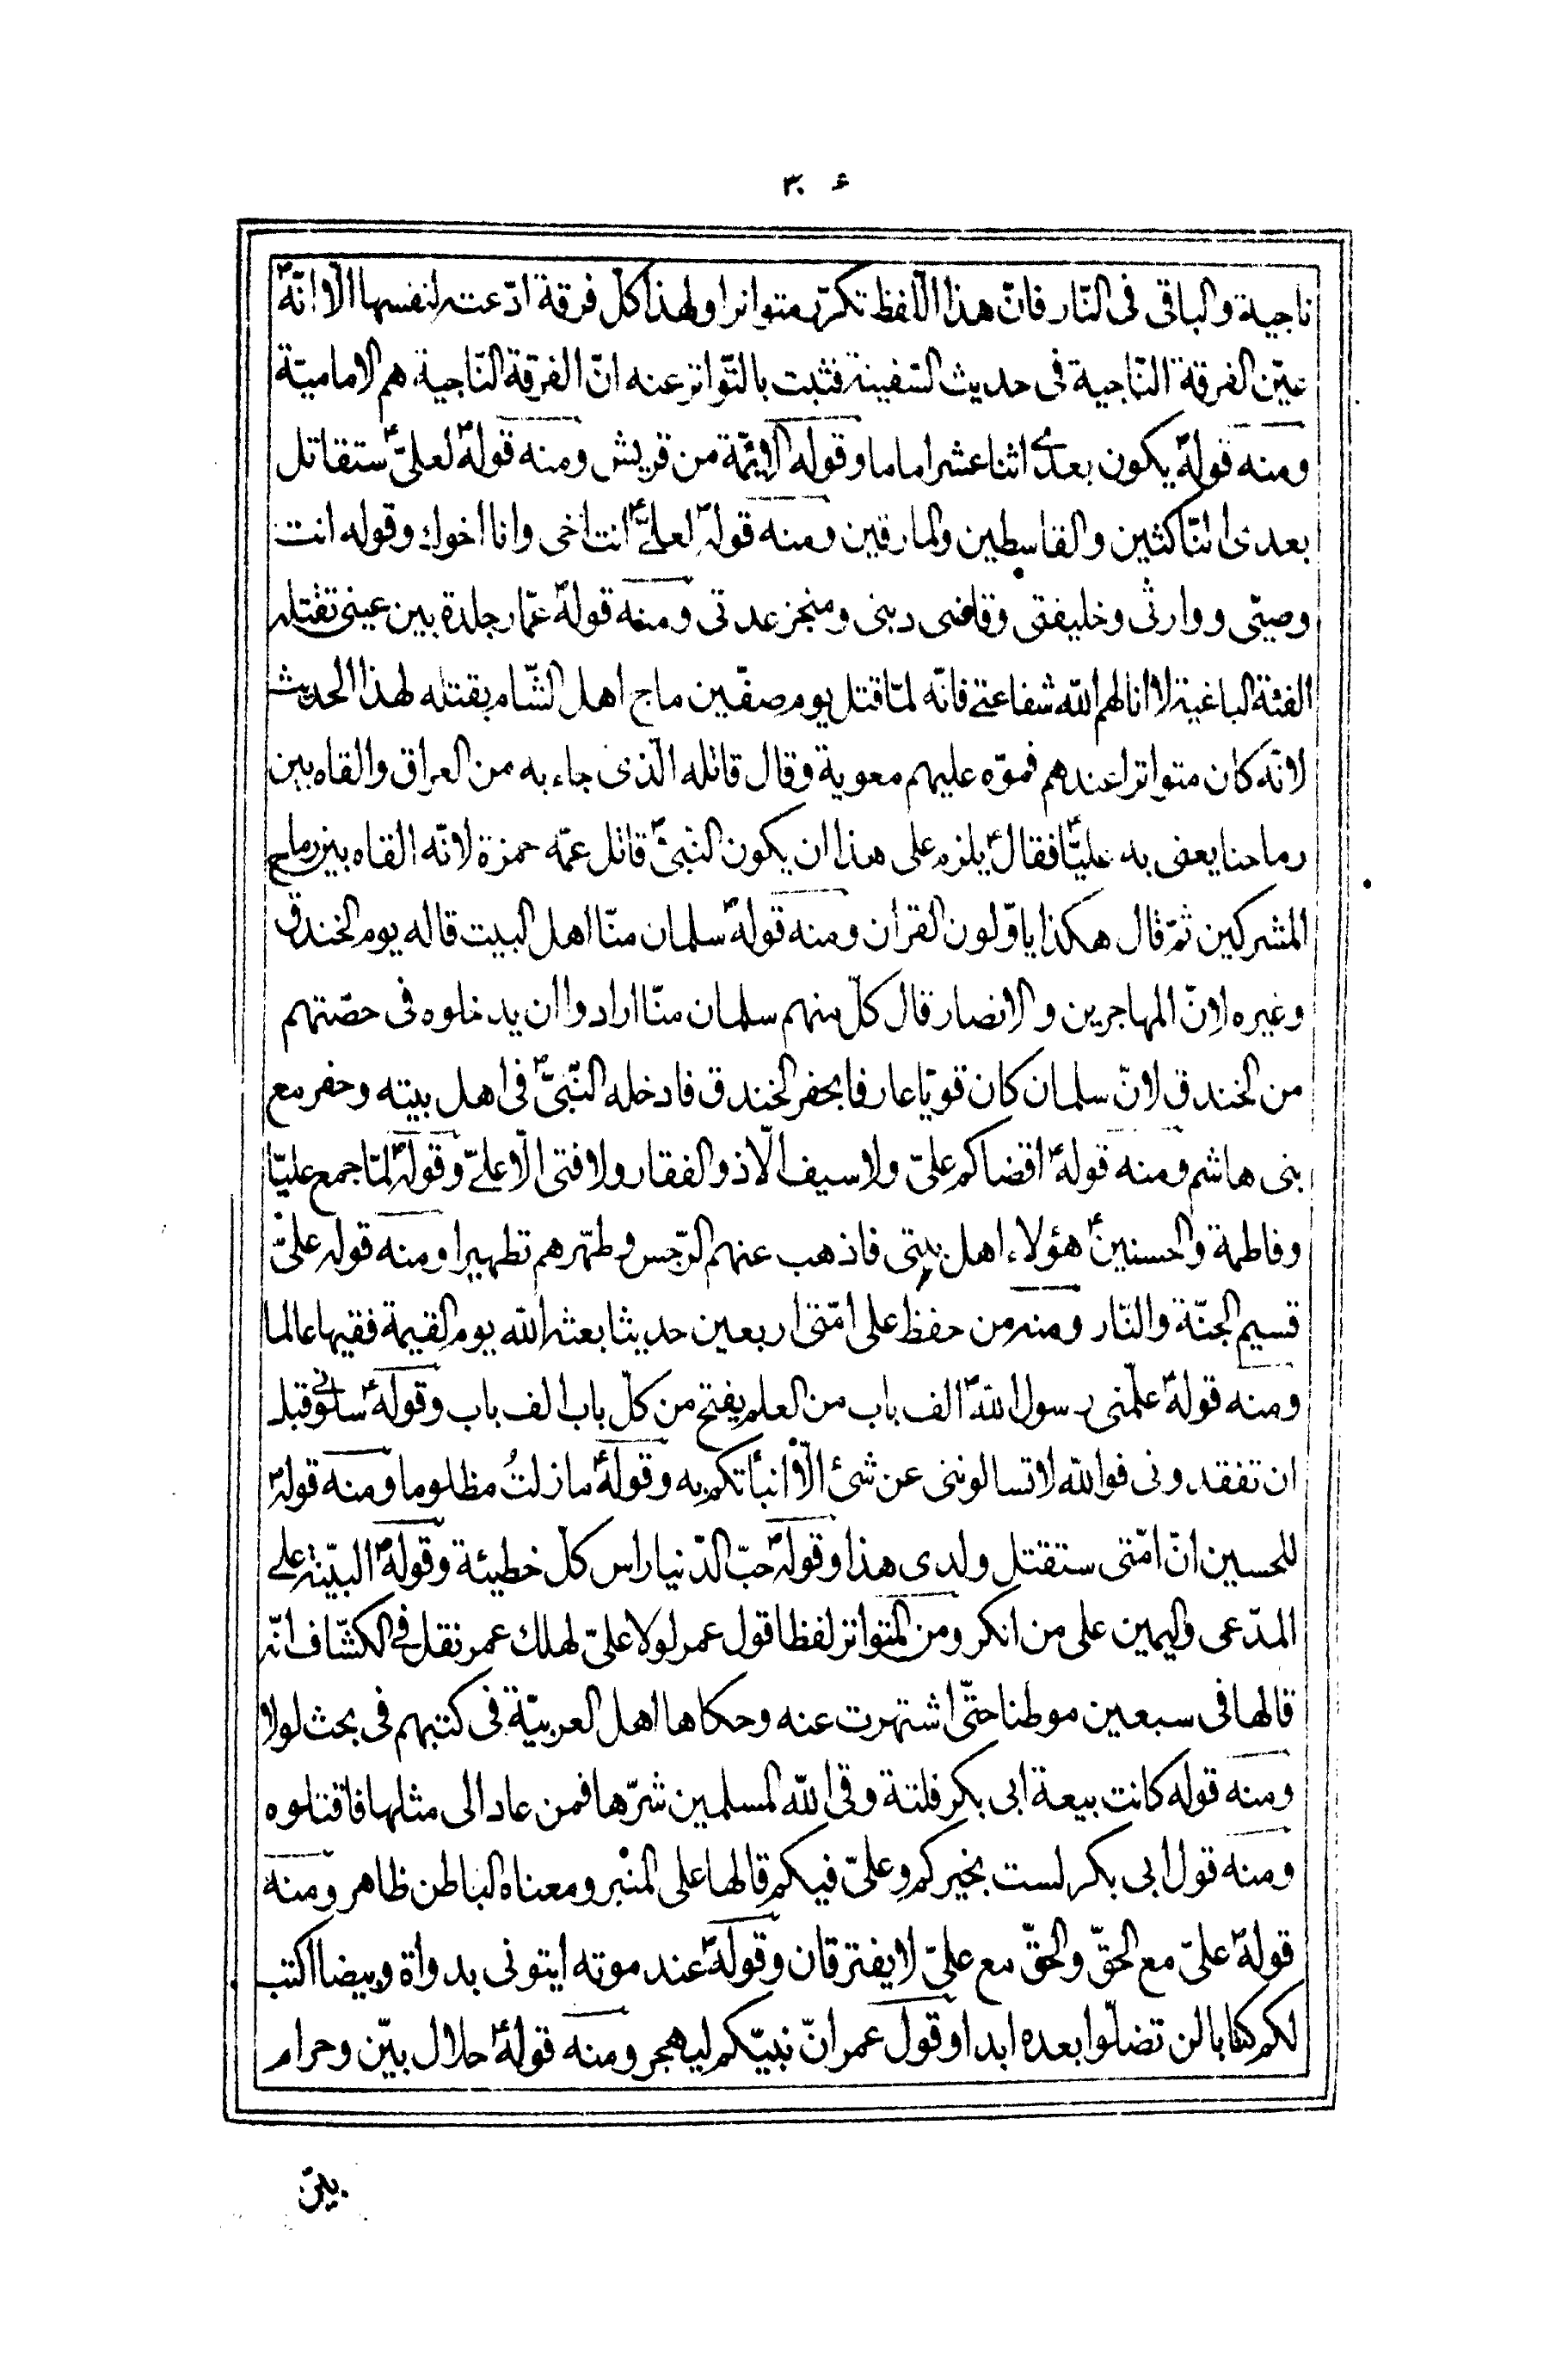 ٣٠٤
ناجية والباقى فى النّار فانّ هذا اللّفظ تكرّر متواترا ولهذا كلّ فرقة ادّعته لنفسها الّا انّه ص
عيّن الفرقة النّاجية فى حديث السّفينة فثبت بالتّواتر عنه انّ الفرقة النّاجية هم الاماميّة
ومنه قوله ص يكون بعدى اثنا عشر اماما وقوله الائمّة من قريش ومنه قوله ص لعلىّ ع ستقاتل
بعدى النّاكثين والقاسطين والمارقين ومنه قوله ص لعلىّ ع انت اخى وانا اخوك وقوله انت
وصيّى ووارثى وخليفتى وقاضى دينى ومنجز عدتى ومنه قوله ص عمّار جلدة بين عينى تقتله
الفئة الباغية لا انالهم اللّه شفاعتى فانّه لمّا قتل يوم صفّين ماج اهل الشّام بقتله لهذا الحديث
لانّه كان متواترا عندهم فموّه عليهم معوية وقال قاتله الّذى جاء به من العراق والقاه بين
رماحنا يعنى به عليّا ع فقال ع يلزم على هذا ان يكون النّبىّ ص قاتل عمّه حمزة لانّه القاه بين رماح
المشركين ثمّ قال هكذا ياوّلون القرآن ومنه قوله ص سلمان منّا اهل البيت قاله يوم الخندق
وغيره لانّ المهاجرين والانصار قال كلّ منهم سلمان منّا ارادوا ان يدخلوه فى حصّتهم
من الخندق لانّ سلمان كان قويّا عارفا بحفر الخندق فادخله النّبىّ ص فى اهل بيته وحفر مع
بنى هاشم ومنه قوله ص اقضاكم علىّ ولا سيف الّا ذو الفقار ولا فتى الّا علىّ وقوله ص لمّا جمع عليّا
وفاطمة والحسنين ع هؤلاء اهل بيتى فاذهب عنهم الرّجس وطهّرهم تطهيرا ومنه قوله علىّ
قسيم الجنّة والنّار ومنه من حفظ على امّتى اربعين حديثا بعثه اللّه يوم القيمة فقيها عالما
ومنه قوله ع علّمنى رسول اللّه ص الف باب من العلم يفتح من كلّ باب الف باب وقوله ع سلونى قبل
ان تفقدونى فواللّه لا تسالوننى عن شئ الّا انبأتكم به وقوله ع ما زلتُ مظلوما ومنه قوله ص
للحسين انّ امّتى ستقتل ولدى هذا وقوله ص حبّ الدّنيا راس كلّ خطيئة وقوله ص البيّنة على
المدّعى واليمين على من انكر ومن المتواتر لفظا قول عمر لولا علىّ لهلك عمر نقل فى الكشّاف انّه
قالها فى سبعين موطنا حتّى اشتهرت عنه وحكاها اهل العربيّة فى كتبهم فى بحث لولا
ومنه قوله كانت بيعة ابى بكر فلتة وقى اللّه المسلمين شرّها فمن عاد الى مثلها فاقتلوه
ومنه قول ابى بكر لست بخيركم وعلىّ فيكم قالها على المنبر ومعناه الباطن ظاهر ومنه
قوله ص علىّ مع الحقّ والحقّ مع علىّ لا يفترقان وقوله ص عند موته ايتونى بدواة وبيضا اكتب
لكم كتابا لن تضلّوا بعده ابدا وقول عمر انّ نبيّكم ليهجر ومنه قوله ص حلال بيّن وحرام
بيّن